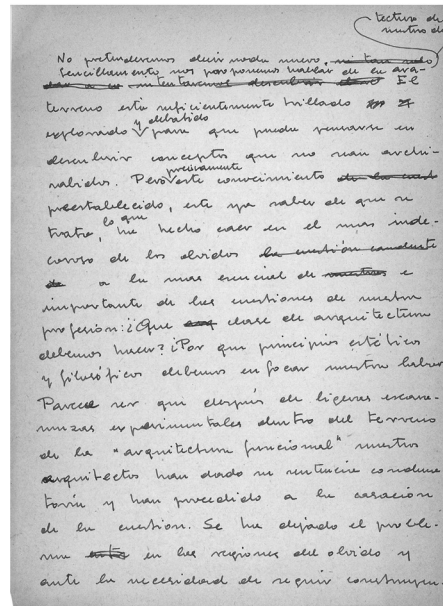 tectura de
nuestro de
No pretenderemos decir nada nuevo,
Sencillamente nos proponemos hablar de la arqui-
El
terreno está suficientemente trillado
y debatido
explorado para que pueda pensarse en
descubrir conceptos que no sean archi-
sabidos. Pero precisamente este conocimiento
preestablecido, este ya saber de que se
trata, lo que ha hecho caer en el mas inde-
coroso de los olvidos la cuestión candente
a la mas esencial de e
importante de las cuestiones de nuestra
profesion: ¿Que clase de arquitectura
debemos hacer? ¿Por que principios estéticos
y filosóficos debemos enfocar nuestra labor
Parece ser que después de ligeras escara-
muzas experimentales dentro del terreno
de la "arquitectura funcional" nuestros
arquitectos han dado su sentencia condena
toria y han procedido a la casación
de la cuestion. Se ha dejado el proble-
ma en las regiones del olvido y
ante la necesidad de seguir construyen-